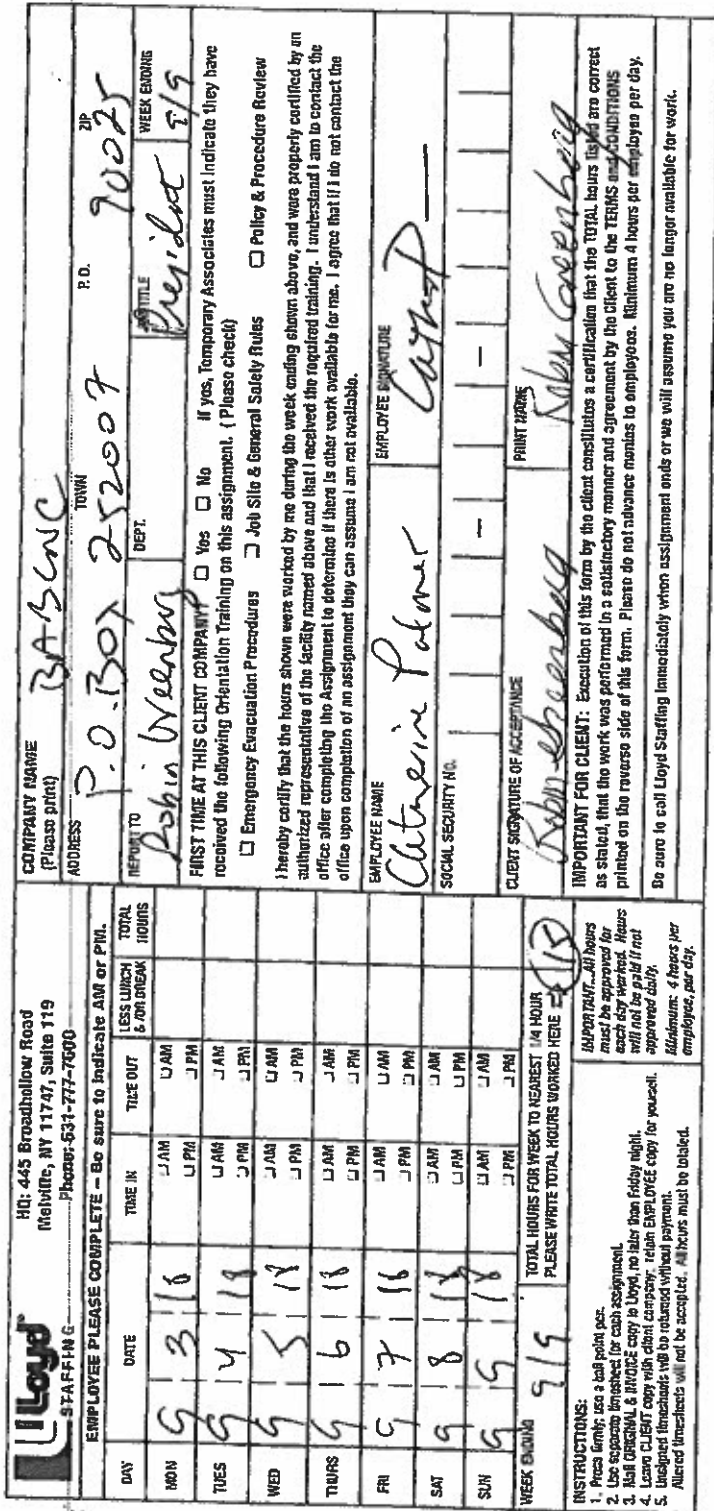 Lloyd
STAFFING
HQ: 445 Broadhollow Road
Melville, NY 11747, Suite 119
Phone: 631-777-7600
EMPLOYEE PLEASE COMPLETE – Be sure to indicate AM or PM.
DAY DATE TIME IN TIME OUT LESS LUNCH & /OR BREAK TOTAL HOURS
MON 9 3 18 AM PM AM PM
TUES 9 4 18 AM PM AM PM
WED 9 5 18 AM PM AM PM
THURS 9 6 18 AM PM AM PM
FRI 9 7 18 AM PM AM PM
SAT 9 8 18 AM PM AM PM
SUN 9 9 18 AM PM AM PM
WEEK ENDING 9/9
TOTAL HOURS FOR WEEK TO NEAREST 1/4 HOUR
PLEASE WRITE TOTAL HOURS WORKED HERE 15
INSTRUCTIONS:
1. Press firmly; use a ball point pen.
2. Use separate timesheet for each assignment.
3. Mail ORIGINAL & INVOICE copy to Lloyd, no later than Friday night.
4. Leave CLIENT copy with client company; retain EMPLOYEE copy for yourself.
5. Unsigned timesheets will be returned without payment.
Altered timesheets will not be accepted. All hours must be totaled.
IMPORTANT...All hours
must be approved for
each day worked. Hours
will not be paid if not
approved daily.
Minimum: 4 hours per
employee, per day.
COMPANY NAME
(Please print) BABCNC
ADDRESS TOWN P.O. ZIP
P.O. Box 252007 90025
REPORT TO DEPT. JOB TITLE WEEK ENDING
Robin Greenberg President 9/9
FIRST TIME AT THIS CLIENT COMPANY? Yes No If yes, Temporary Associates must indicate they have
received the following Orientation Training on this assignment. (Please check)
Emergency Evacuation Procedures Job Site & General Safety Rules Policy & Procedure Review
I hereby certify that the hours shown were worked by me during the week ending shown above, and were properly certified by an
authorized representative of the facility named above and that I received the required training. I understand I am to contact the
office after completing the Assignment to determine if there is other work available for me. I agree that if I do not contact the
office upon completion of an assignment they can assume I am not available.
EMPLOYEE NAME EMPLOYEE SIGNATURE
Catherine Palmer
SOCIAL SECURITY NO. – –
CLIENT SIGNATURE OF ACCEPTANCE PRINT NAME
Robin Greenberg Robin Greenberg
IMPORTANT FOR CLIENT: Execution of this form by the client constitutes a certification that the TOTAL hours listed are correct
as stated, that the work was performed in a satisfactory manner and agreement by the Client to the TERMS and CONDITIONS
printed on the reverse side of this form. Please do not advance monies to employees. Minimum 4 hours per employee per day.
Be sure to call Lloyd Staffing immediately when assignment ends or we will assume you are no longer available for work.